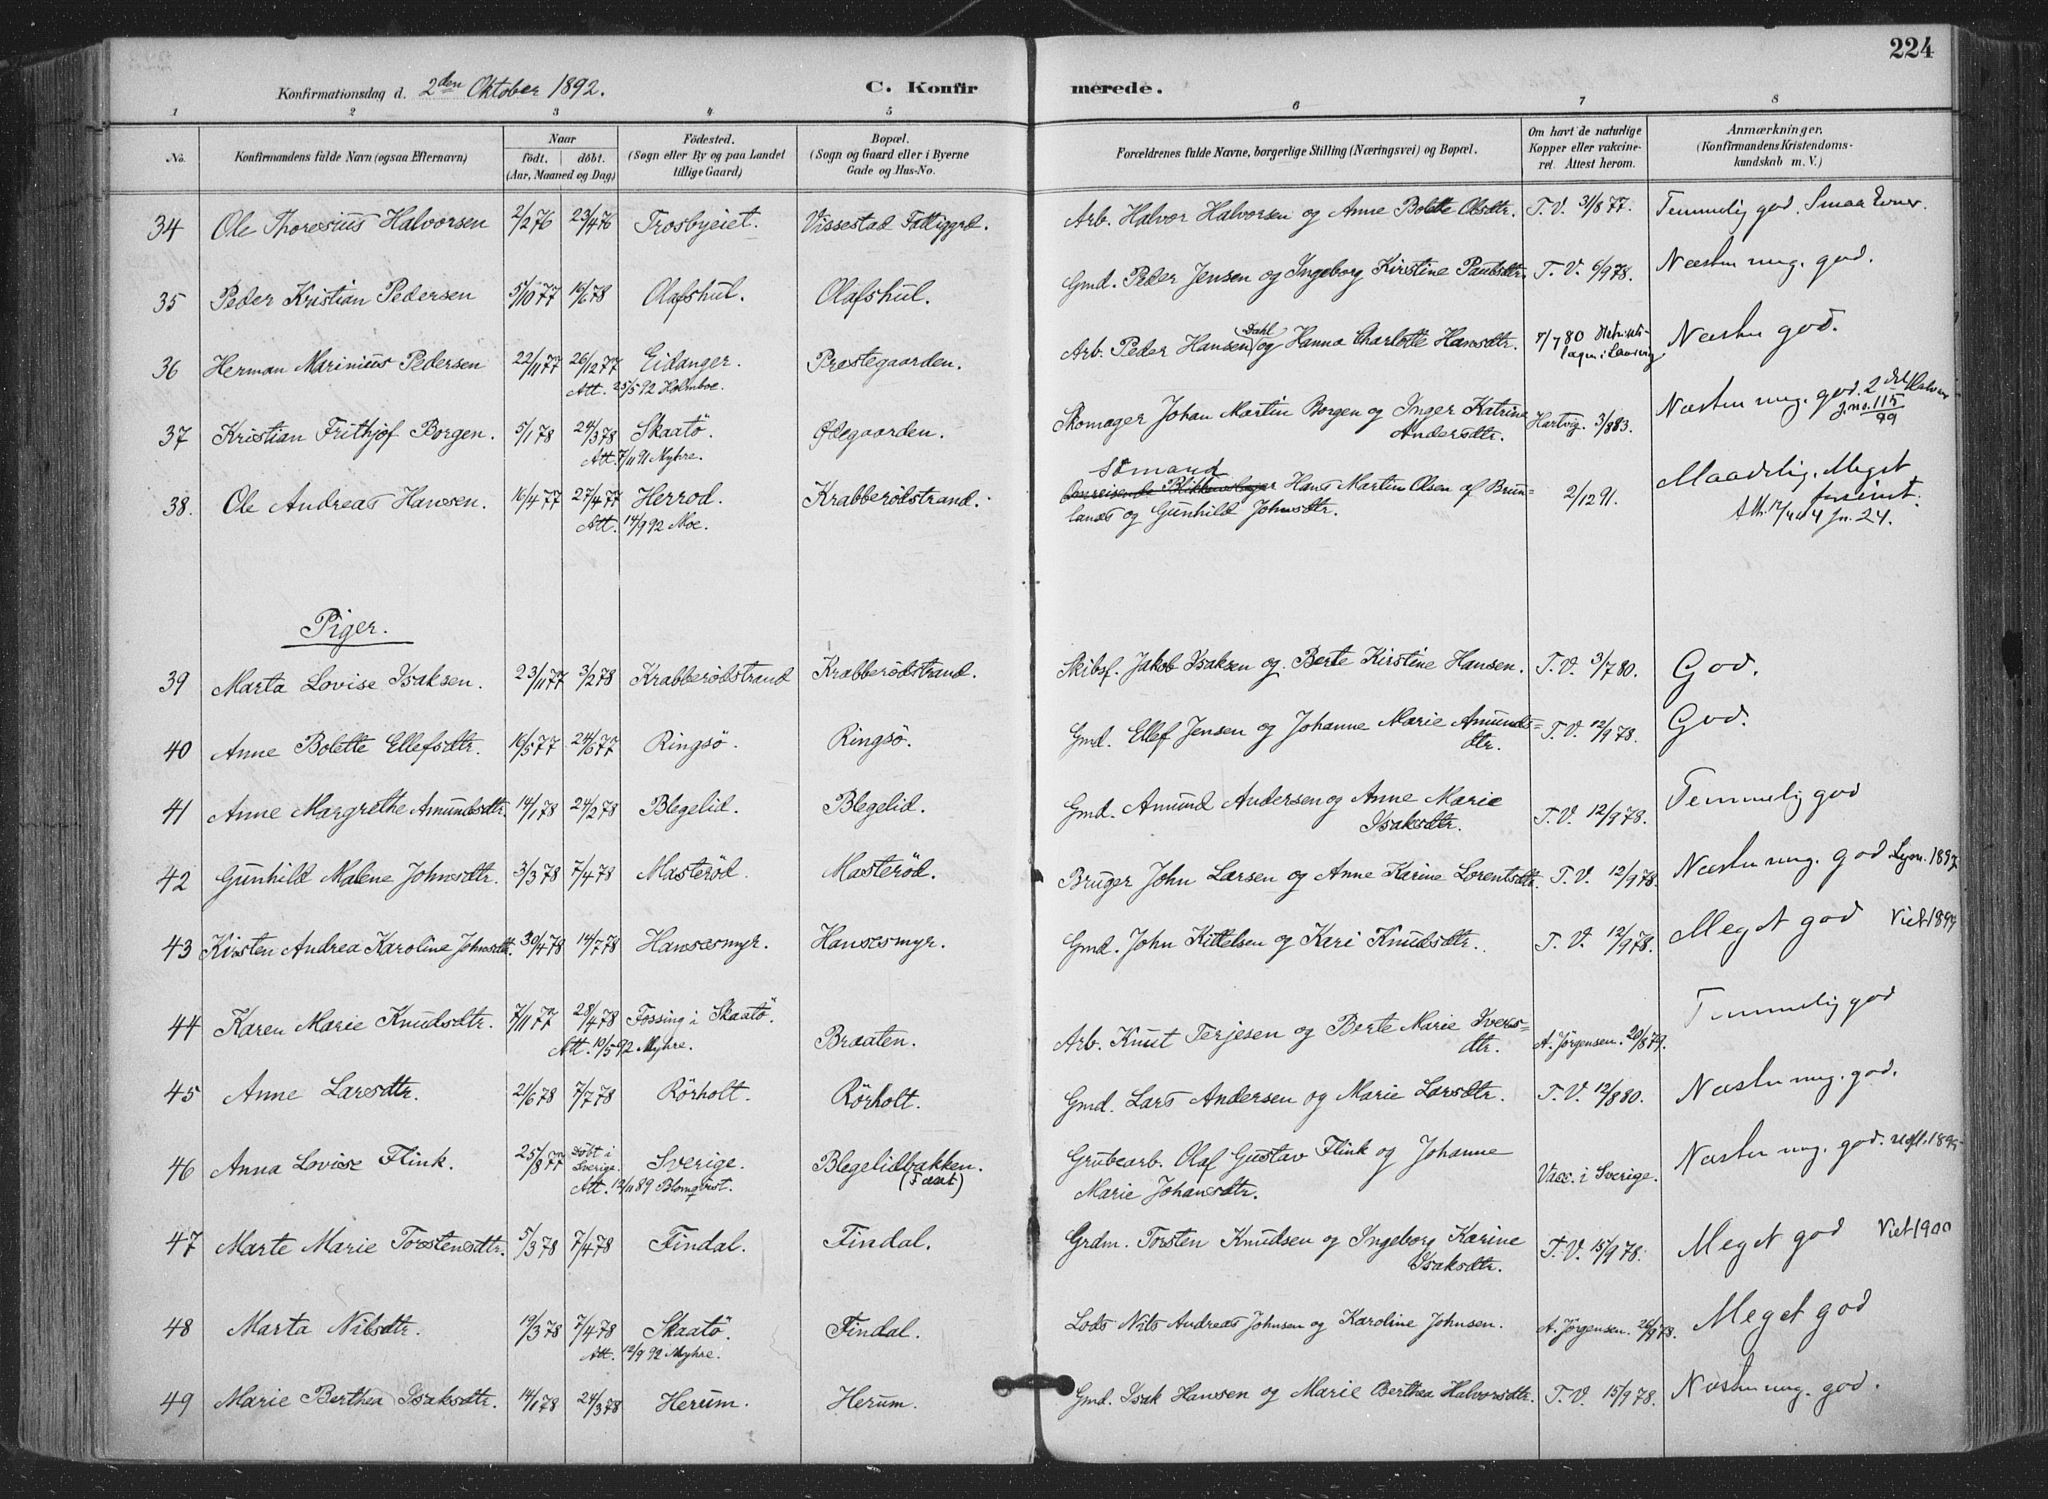 224
Konfirmationsdag d. 2den Oktober 1892. C. Konfirmerede.
1 2 3 4 5 6 7 8
No. Konfirmandens fulde Navn (ogsaa Efternavn) Naar födt. döbt. (Aar, Maaned og Dag) Födested. (Sogn eller By og paa Landet tillige Gaard) Bopæl. (Sogn og Gaard eller i Byerne Gade og Hus-No. Forældrenes fulde Navne, borgerlige Stilling (Næringsvei) og Bopæl. Om havt de naturlige Kopper eller vakcineret. Attest herom. Anmærkninger. (Konfirmandens Kristendomskundskab m. V.)
34 Ole Thoresius Halvorsen 2/2 76 23/4 76 Trosbyeiet. Vissestad Fattiggrd. Arb. Halvor Halvorsen og Anne Bolette Olsdtr. T. V. 31/8 77. Temmelig god. Smaa Evner.
35 Peder Kristian Pedersen 5/10 77 10/6 78 Olafshul. Olafshul. Gmd. Peder Jensen og Ingeborg Kirstine Paulsdtr. T. V. 6/9 78. Næsten mg. god.
36 Herman Marinius Pedersen 22/11 77 26/12 77 Eidanger. Prestegaarden. Arb. Peder Hansen Dahl og Hanna Charlotte Hansdtr. 7/7 80 Næsten god.
Att. 25/5 92 Holmboe.
37 Kristian Frithjof Borgen. 5/1 78 24/3 78 Skaatö. Ødegaarden. Skomager Johan Martin Borgen og Inger Katrine Andersdtr. Hartvig. 3/8 83. Næsten mg. god. j.no. 115/99
Att. 7/11 91 Myhre.
38. Ole Andreas Hansen. 16/4 77 27/4 77 Herrod. Krabberödstrand. Sömand Omreisende Blikkenslager Hans Martin Olsen af Brunlanes og Gunhild Johnsdtr. 2/12 91. Maadelig. Meget forsömt.
Att. 14/9 92 Moe. jn. 24.
Piger.
39 Marta Lovise Isaksen. 23/11 77 3/2 78 Krabberödstrand Krabberödstrand. Skibsf. Jakob Isaksen og Berte Kirstine Hansen. T. V. 3/7 80. God.
40 Anne Bolette Ellefsdtr. 16/5 77 24/6 77 Ringsö. Ringsö. Gmd. Ellef Jensen og Johanne Marie Amundsdtr. T. V. 12/9 78. God.
41 Anne Margrethe Amundsdtr. 14/1 78 24/2 78 Blegelid. Blegelid. Gmd. Amund Andersen og Anne Marie Isaksdtr. T. V. 12/9 78. Temmelig god
42 Gunhild Malene Johnsdtr. 3/3 78 7/4 78 Masteröd. Masteröd. Bruger John Larsen og Anne Karine Lorentsdtr. T. V. 12/9 78. Næsten mg. god
43 Kirsten Andrea Karoline Johnsdtr. 30/4 78 14/7 78 Hansesmyr. Hansesmyr. Gmd. John Kittelsen og Kari Knudsdtr. T. V. 12/9 78. Meget god Viet 1899
44 Karen Marie Knudsdtr. 7/11 77 28/4 78 Fossing i Skaatö. Braaten. Arb. Knut Terjesen og Berte Marie Iversdtr. A. Jörgensen. 20/8 79. Temmelig god
Att. 10/5 92 Myhre.
45 Anne Larsdtr. 21/6 78 7/7 78 Rörholt. Rörholt. Gmd. Lars Andersen og Marie Larsdtr. T. V. 12/8 80. Næsten mg. god.
46 Anna Lovise Flink. 25/8 77 Döbt i Sverige. Sverige. Blegelidbakken. (Fæset) Grubearb. Olaf Gustav Flink og Johanne Marie Johansdtr. Vacc. i Sverige. Næsten mg. god.
Att. 12/11 89 Blomqvist.
47 Marte Marie Torstensdtr. 5/3 78 7/4 78 Findal. Findal. Grdm. Torsten Knudsen og Ingeborg Karine Isaksdtr. T. V. 15/9 78. Meget god Viet 1900
48 Marta Nilsdtr. 19/3 78 7/4 78 Skaatö. Findal. Lods Nils Andreas Johnsen og Karoline Johnsen. A. Jörgensen. 26/9 78. Meget god
Att. 12/9 92 Myhre.
49 Marie Berthea Isaksdtr. 14/1 78 24/3 78 Herum. Herum. Gmd. Isak Hansen og Marie Berthea Halvorsdtr. T. V. 15/9 78. Næsten mg. god.